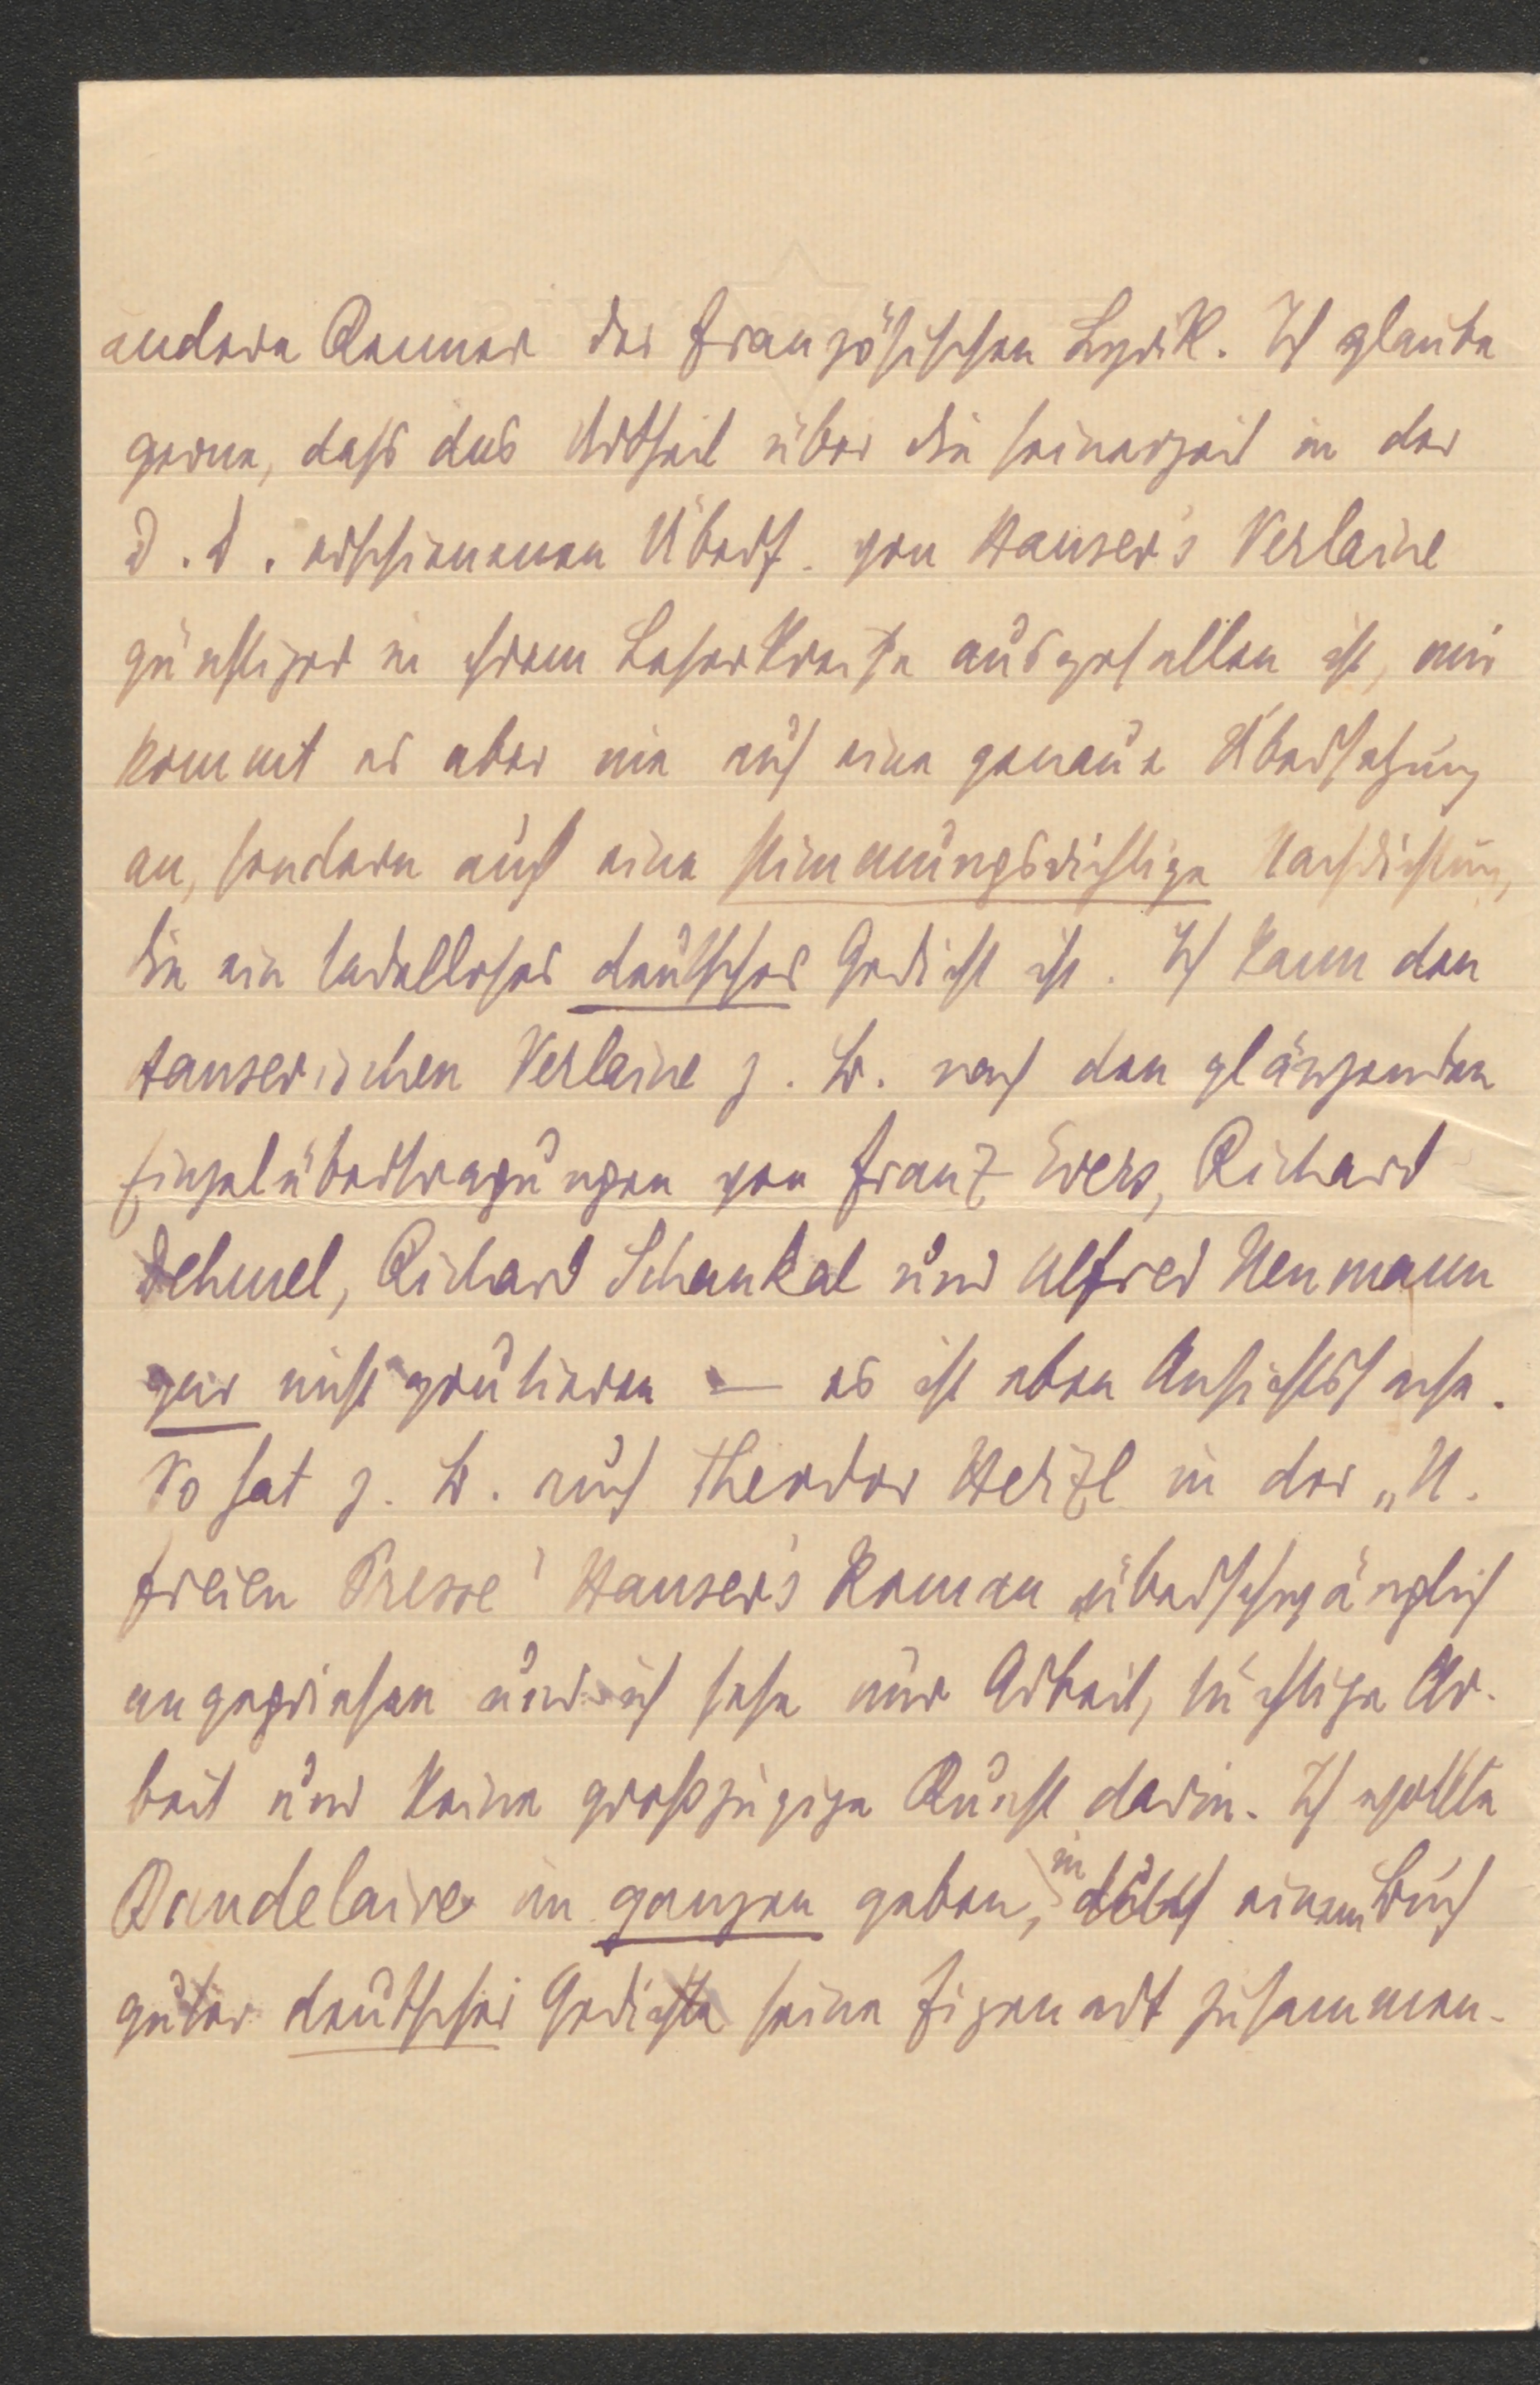 andere Kenner der französischen Lyrik. Ich glaube
gerne, dass das Urtheil über die seinerzeit in der
D. D. erschienenen Übers. von Hauser's Verlaine
günstiger in ihrem Leserkreise ausgefallen ist, mir
kommt es aber nie auf eine genaue Übersetzung
an, sondern auf eine stimmungsrichtige Nachdichtung,
die ein tadelloses deutsches Gedicht ist. Ich kann den
Hauserischen Verlaine z. B. nach den glänzenden
Einzelübertragungen von Franz Evers, Richard
Dehmel, Richard Schaukal und Alfred Neumann
gar nicht goutieren — es ist eben Ansichtssache.
So hat z. B. auch Theodor Herzl in der „N.
freien Presse" Hauser's Roman überschwänglich
angepriesen und ich sehe nur Arbeit, tüchtige Ar-
beit und keine großzügige Kunst darin. Ich wollte
Baudelaire im ganzen geben, in einem Buch
guter deutscher Gedichte seine Eigenart zusammen-